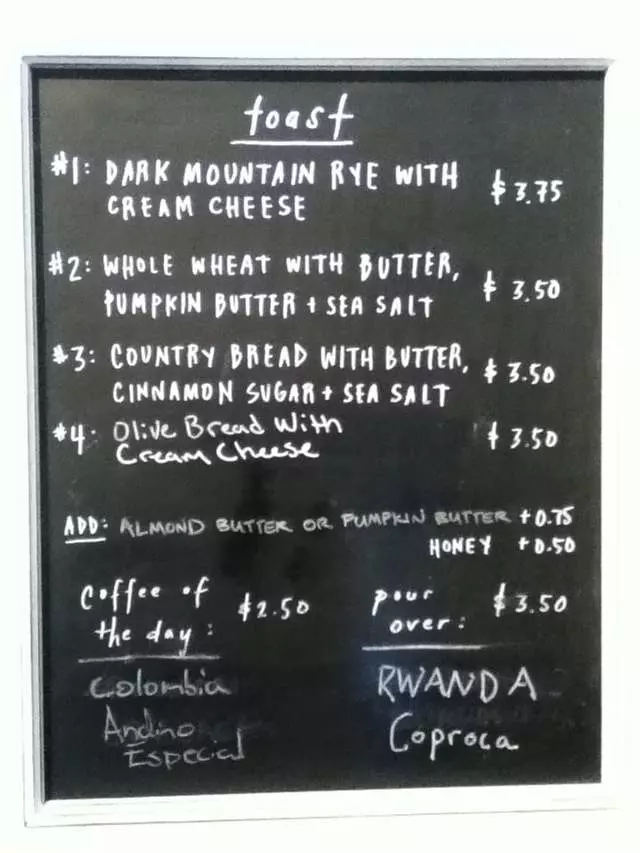 toast
#1: DARK MOUNTAIN RYE WITH $3.75
CREAM CHEESE
#2: WHOLE WHEAT WITH BUTTER, $3.50
PUMPKIN BUTTER + SEA SALT
#3: COUNTRY BREAD WITH BUTTER, $3.50
CINNAMON SUGAR + SEA SALT
#4: Olive Bread With $3.50
Cream Cheese
ADD: ALMOND BUTTER OR PUMPKIN BUTTER +0.75
HONEY +0.50
Coffee of $2.50
the day:
Colombia
Andino
Especial
pour $3.50
over:
RWANDA
Coproca